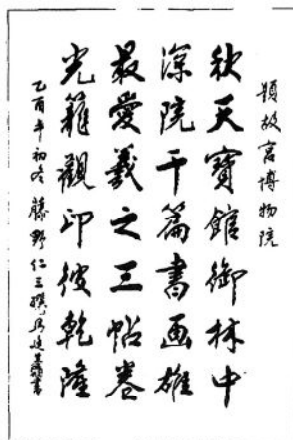 題故宮博物院
秋天寶館御林中
深院千篇書画雄
最愛羲之三帖卷
光籠觀印彼乾隆
乙酉年初冬 藤野仁三撰 書